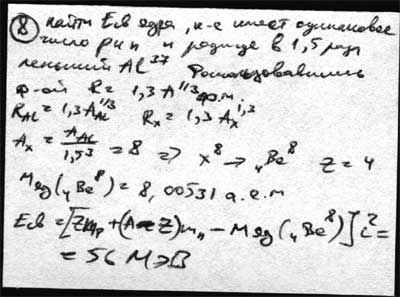 ⑧ найти Eсв ядра, к-е имеет одинаковое
число p и n и радиус в 1,5 раза
меньший Al²⁷ воспользовавшись
ф-ой R = 1,3 A^1/3 ф.м.
R_Al = 1,3 A_Al^1/3 R_x = 1,3 A_x^1/3
A_x = A_Al / 1,5³ = 8 => x⁸ → ₄Be⁸ Z = 4
M яд (₄Be⁸) = 8,00531 а.е.м
Eсв = [Z m_p + (A - Z) m_n - M яд (₄Be⁸)] c² =
= 56 МэВ